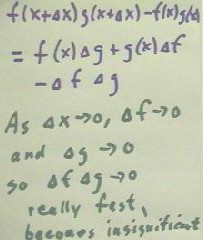 f(x+Δx)g(x+Δx)-f(x)g(x)
= f(x)Δg+g(x)Δf
-Δf Δg
As Δx→0, Δf→0
and Δg→0
so Δf Δg→0
really fast,
becomes insignificant